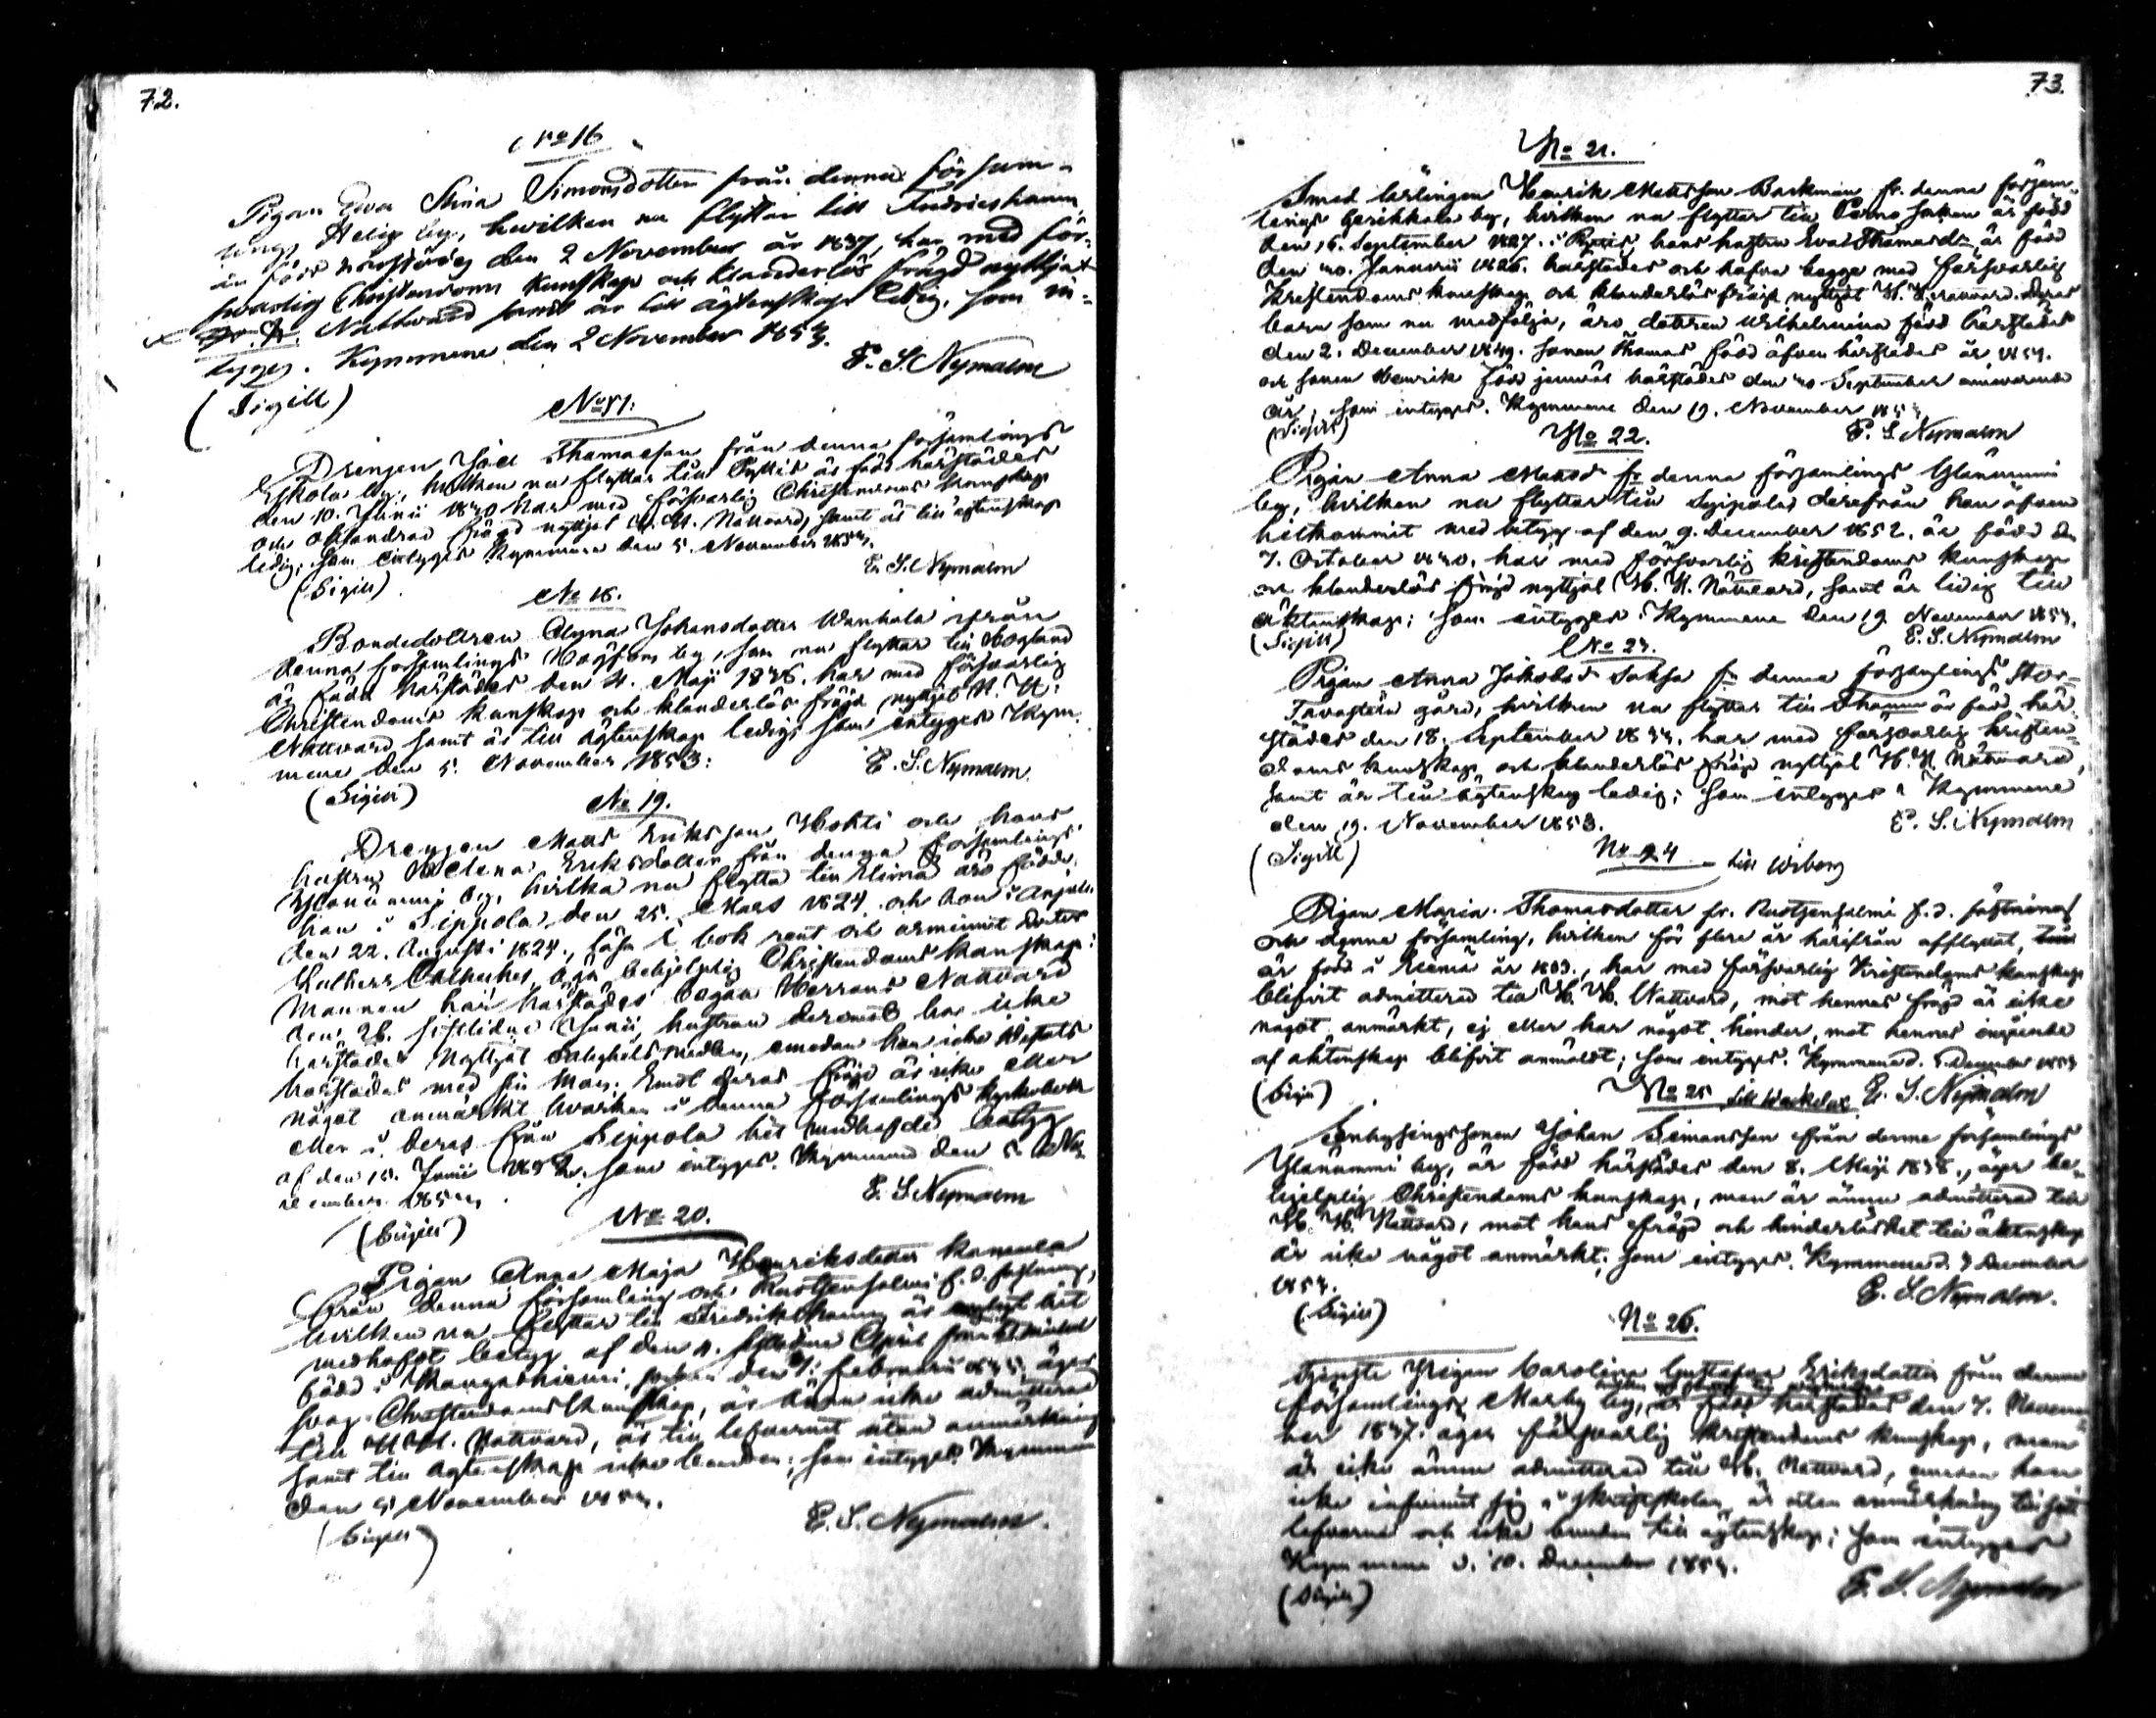 72.
No 16
Pigan Eva Stina Simonsdotter från denna försam-
lings Helig by, hwilken nu flyttar till Fredricshamn
är född härstädes den 2 November år 1837, har med för-
svarlig Christendoms kunskap och klanderlös frägd nyttjat
Nattward samt är till ägtenskap ledig, som in-
tyges. Kymmene den 2 November 1853.
E. S. Nymalm
(Sigill)
No 17.
Drengen Joel Thomasson från denna församlings
by, hvilken nu flyttar till Pyttis är född härstädes
den 10. Junii 1830 har med försvarlig Christendoms kunskap
och oklandrad frägd nyttjat H. H. Nattvard, samt är till ägtenskap
ledig; som intyges Kymmene den 5. November 1853.
E. S. Nymalm
(Sigill)
No 18.
Bondedottren Anna Johansdotter Wanhala ifrån
denna församlings by, som nu flyttar till Hogland
är född härstädes den 4. Maji 1836. har med försvarlig
Christendoms kunskap och klanderlös frägd nyttjat H. H.
Nattvard samt är till ägtenskap ledig; som intyges Kym-
mene den 5. November 1853.
E. S. Nymalm
(Sigill)
No 19.
Drengen Matts Eriksson Hokti och hans
hustru Helena Eriksdotter från denna församlings
Ylänummi by, hvilka nu flytta till Elimä äro födde
han i Sippola den 25. Mars 1824 och hon i Anjala
den 22. Augusti 1824., läsa i bok rent och
Lutheri Catheches, äga behjelplig Christendoms kunskap:
Mannen har härstädes begått Herrans Nattvard
den 26. sistlidne Junii, hustrun deremot har icke
härstädes nyttjat Salighetsmedlen, emedan hon icke vistats
härstädes med sin Man: Emot deras frägd är icke eller
något anmärkt hvarken i denna församlings Kyrkobok
eller i deras från Sippola hit medhafde betyg
af den 15. Junii 1852. som intyges. Kymmene den 5 No-
vember 1853.
E. S. Nymalm
(Sigill)
No 20.
Pigan Anna Maja Henriksdotter
från denna församling och Ruotzensalmi f. d. fästning,
hvilken nu flyttar till Fredrikshamn är enligt hit
medhafdt betyg af den 4. sistledne April från
född i Kangasniemi socken den Februarii äger
svag Christendoms kunskap, är ännu icke admitterad
till H. H. Nattvard, är till lefvernet utan anmärkning
samt till ägtenskap icke bunden; som intyges Kymmene
den 5 November 1853.
E. S. Nymalm.
(Sigill)
73.
No 21.
Smed lärlingen Henrik Mattsson Backman fr. denna försam-
lings by, hvilken nu flyttar till Perno socken är född
den 16. September 1827. i Pyttis hans hustru Eva Thomasdr är född
den 20. Januarii 1826. härstädes och hafva begge med försvarlig
Kristendoms kunskap och klanderlös frägd nyttjat H. H. Nattvard. Deras
barn som nu medfölja, äro dottren Wilhelmina född härstädes
den 2. December 1849. Sonen Thomas född äfven härstädes år 1851.
och Sonen Henrik född jemväl härstädes den 20 September innevarande
år; som intyges. Kymmene den 19. November 1853
(Sigill)
E. S. Nymalm
No 22.
Pigan Anna Mattsdr fr denna församlings Ylänummi
by, hvilken nu flyttar till Sippola derifrån hon äfven
hitkommit med betyg af den 9. December 1852. är född den
7. October 1830. har med försvarlig kristendoms kunskap
och klanderlös frägd nyttjat H. H. Nattvard, samt är ledig till
äktenskap; som intyges. Kymmene den 19 November 1853.
(Sigill)
E. S. Nymalm
No 23.
Pigan Anna Jakobsdr fr denna församlings Stor-
gård, hvilken nu flyttar till är född här-
städes den 18. September 1833. har med försvarlig kristen-
doms kunskap och klanderlös frägd nyttjat H. H. Nattvard,
samt är till ägtenskap ledig; som intyges. Kymmene
den 19. November 1853.
E. S. Nymalm
(Sigill)
No 24 till Wiborg
Pigan Maria Thomasdotter fr. Ruotzensalmi f. d. fästning
och denna församling, hvilken för flere år härifrån afflyttat,
är född i Elimä år 1803., har med försvarlig Kristendoms kunskap
blifvit admitterad till H. H. Nattvard, mot hennes frägd är icke
något anmärkt, ej eller har något hinder mot hennes ingående
af äktenskap blifvit anmäldt; som intyges. Kymmene d. 5 December 1853
(Sigill)
E. S. Nymalm
No 25 till Weckelax
Inhysingssonen Johan Simonsson från denna församlings
Ylänummi by, är född härstädes den 8. Maji 1838., äger be-
hjelplig Christendoms kunskap, men är ännu admitterad till
H. H. Nattvard, mot hans frägd och hinderlöshet till äktenskap
är icke något anmärkt; som intyges. Kymmene d. December
1853.
E. S. Nymalm.
(Sigill)
No 26.
Tjenste Pigan Carolina Gustafva Eriksdotter från denna
församlings Marby by, är född härstädes den 7. Novem-
ber 1837. äger försvarlig kristendoms kunskap, men
är icke ännu admitterad till H. Nattvard, emedan hon
icke infunnit sig i skriftskolan, är utan anmärkning till sitt
lefverne och icke bunden till ägtenskap; som intyges
Kymmene d. 10. December 1853.
E. S. Nymalm
(Sigill)